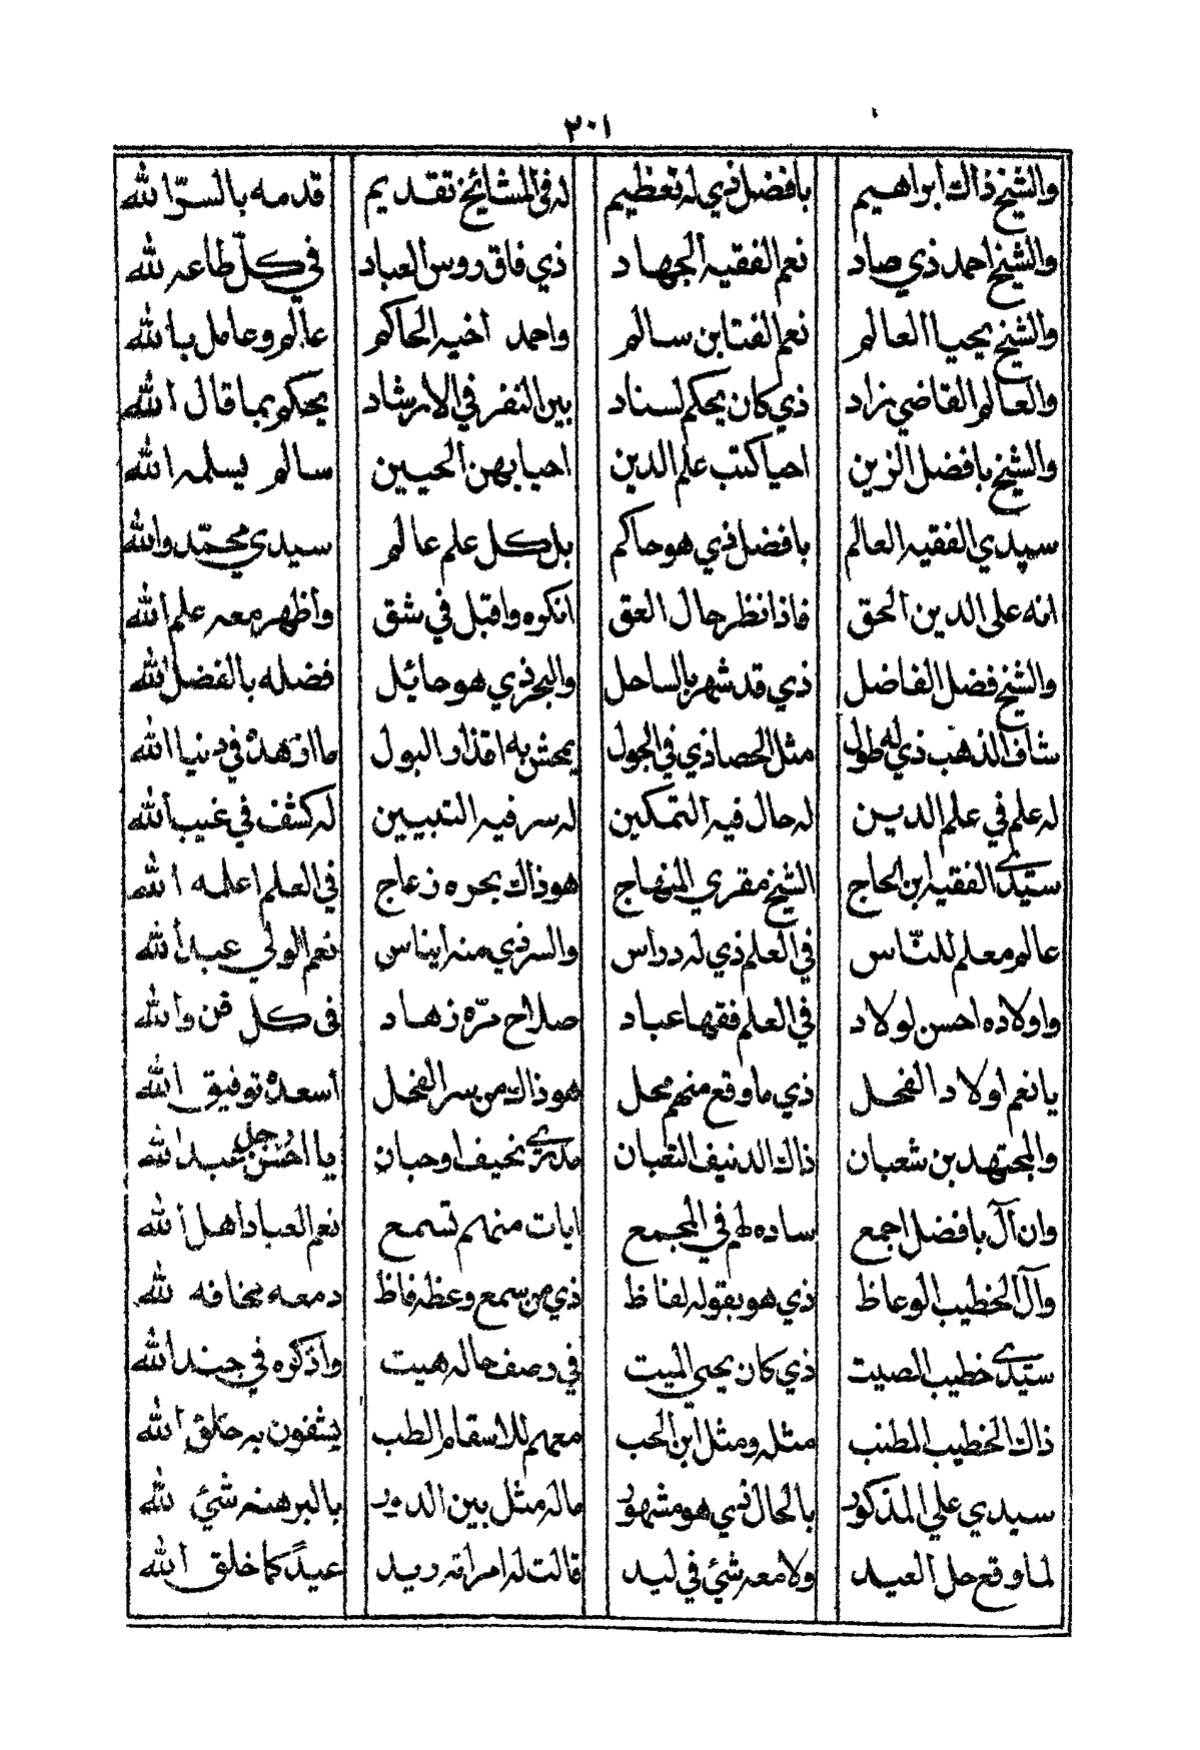 ٢٠١
والشيخ ذاك ابراهيم بافضل ذي له تعظيم له في المشائخ تقديم قدمه بالسرّ الله
والشيخ احمد ذي صاد نعم الفقيه الجهاد ذي فاق روس العباد في كلّ طاعه لله
والشيخ يحيا العالم نعم الفتا بن سالم واحمد اخيه الحاكم عالم وعامل بالله
والعالم القاضي زاد ذي كان يحكم لسناد بين النفر في الارشاد يحكم بما قال الله
والشيخ بافضل الزين احيا كتب علم الدين احيا بهن الحيين سالم يسلمه الله
سيدي الفقيه العالم بافضل ذي هو حاكم بل كل علم عالم سيدي محمّد والله
انه على الدين الحق فاذا نظر حال العق انكره واقبل في شق واظهر معه علم الله
والشيخ فضل الفاضل ذي قد شهر بالساحل والبحر ذي هو حائل فضله بالفضل الله
شاف الذهب ذي له طول مثل الحصا ذي في الجول يمحش به اقذار البول ما ازهده في دنيا الله
له علم في علم الدين له حال فيه التمكين له سر فيه التبيين له كشف في غيب الله
سيّدي الفقيه ابن الحاج الشيخ مقري المنهاج هو ذاك بحره زعاج في العلم اعلمه الله
عالم ومعلم للنّاس في العلم ذي له دراس والسر ذي منه ايناس نعم الولي عبد الله
واولاده احسن لولاد في العلم فقها عباد صلاح مرّه زهاد في كل فن والله
يا نعم اولاد الفحل ذي ما وقع منهم محل هو ذاك من سر الفحل أسعده توفيق الله
والمجتهد بن شعبان ذاك الدنيف التعبان مدري نحيف او حبان يا احسن رجل عبد الله
وان آل بافضل اجمع ساده لهم في المجمع ايات منهم تسمع نعم العباد اهل الله
وآل الخطيب الوعاظ ذي هو بقوله لفاظ ذي من سمع وعظه فاظ دمعه مخافه لله
سيّدي خطيب الصيت ذي كان يحيي الميت في وصف حاله هيت واذكره في جند الله
ذاك الخطيب المطنب مثله ومثل ابن الحب معهم للاسقام الطب يشفون به خلق الله
سيدي علي المذكور بالحال ذي هو مشهور ماله مثل بين الدور بالبر هنه شيْ لله
لما وقع حل العيد ولا معه شيْ في ليد قالت له امراته رويد عيد كما خلق الله